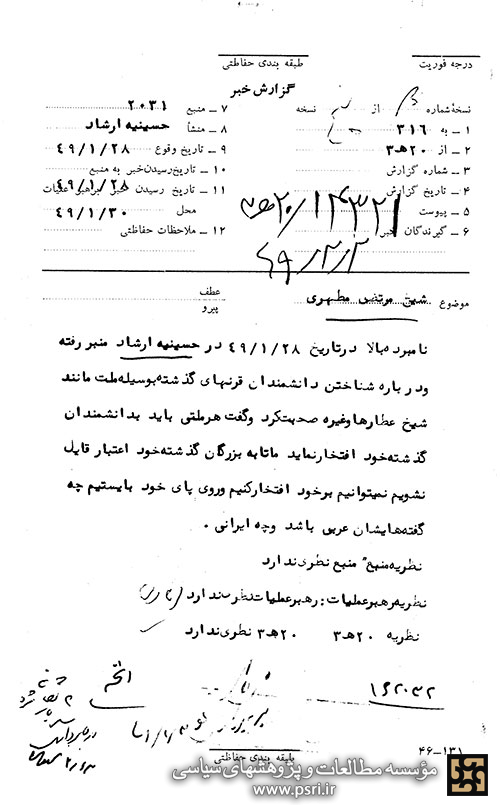 درجه فوریت
طبقه بندی حفاظتی
گزارش خبر
نسخه شماره از نسخه
۱ ـ به ۳۱۶
۲ ـ از ۲۰هـ۳
۳ ـ شماره گزارش
۴ ـ تاریخ گزارش
۵ ـ پیوست
۶ ـ گیرندگان خبر
۷ ـ منبع ۲۰۳۱
۸ ـ منشأ حسینیه ارشاد
۹ ـ تاریخ وقوع ۴۹/۱/۲۸
۱۰ ـ تاریخ رسیدن خبر به منبع
۱۱ ـ تاریخ رسیدن خبر برهبر عملیات ۴۹/۱/۲۸
محل ۴۹/۱/۳۰
۱۲ ـ ملاحظات حفاظتی
۱۴۳۲۱
موضوع شیخ مرتضی مطهری
عطف
پیرو
نامبرده بالا درتاریخ ۴۹/۱/۲۸ در حسینیه ارشاد منبر رفته
ودرباره شناختن دانشمندان قرنهای گذشته بوسیله ملت مانند
شیخ عطارها وغیره صحبت کرد وگفت هر ملتی باید بدانشمندان
گذشته خود افتخار نماید ماتا به بزرگان گذشته خود اعتبار قایل
نشویم نمیتوانیم برخود افتخارکنیم وروی پای خود بایستیم چه
گفته هایشان عربی باشد وچه ایرانی .
نظریه منبع" منبع نظری ندارد
نظریه رهبرعملیات: رهبرعملیات نظری ندارد
نظریه ۲۰هـ۳ ۲۰هـ۳ نظری ندارد
طبقه بندی حفاظتی
۴۶-۱۳۱
مؤسسه مطالعات و پژوهشهای سیاسی
www.psri.ir